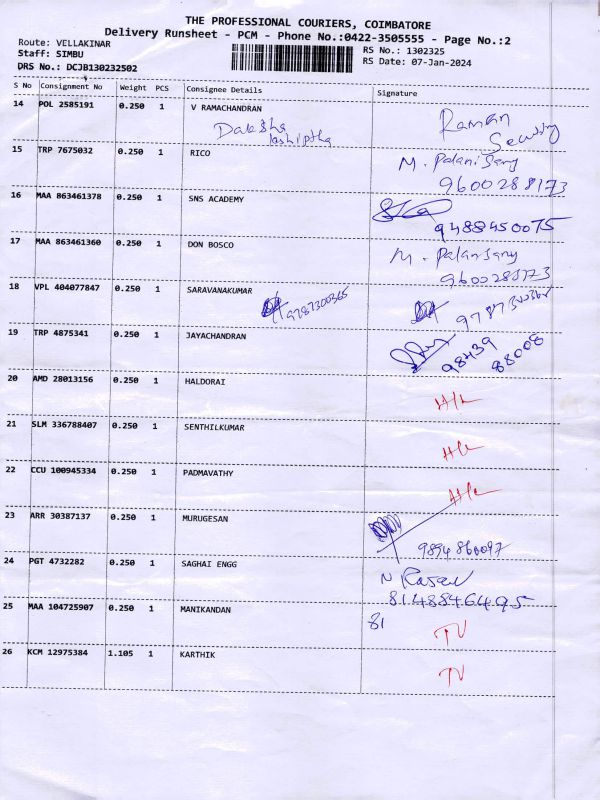 THE PROFESSIONAL COURIERS, COIMBATORE
Delivery Runsheet - PCM - Phone No.:0422-3505555 - Page No.:2
Route: VELLAKINAR
RS No.: 1302325
Staff: SIMBU
RS Date: 07-Jan-2024
DRS No.: DCJB130232502
S No Consignment No Weight PCS Consignee Details Signature
14 POL 2585191 0.250 1 V RAMACHANDRAN Raman
Daksha
15 TRP 7675032 0.250 1 RICO M. Palanisamy
9600288173
16 MAA 863461378 0.250 1 SNS ACADEMY
9488450075
17 MAA 863461360 0.250 1 DON BOSCO M. Palanisamy
9600288173
18 VPL 404077847 0.250 1 SARAVANAKUMAR
9787300365
19 TRP 4875341 0.250 1 JAYACHANDRAN
98439
88008
20 AMD 28013156 0.250 1 HALDORAI
21 SLM 336788407 0.250 1 SENTHILKUMAR
22 CCU 100945334 0.250 1 PADMAVATHY
23 ARR 30387137 0.250 1 MURUGESAN
9894860097
24 PGT 4732282 0.250 1 SAGHAI ENGG
8148846495
25 MAA 104725907 0.250 1 MANIKANDAN 81
26 KCM 12975384 1.105 1 KARTHIK